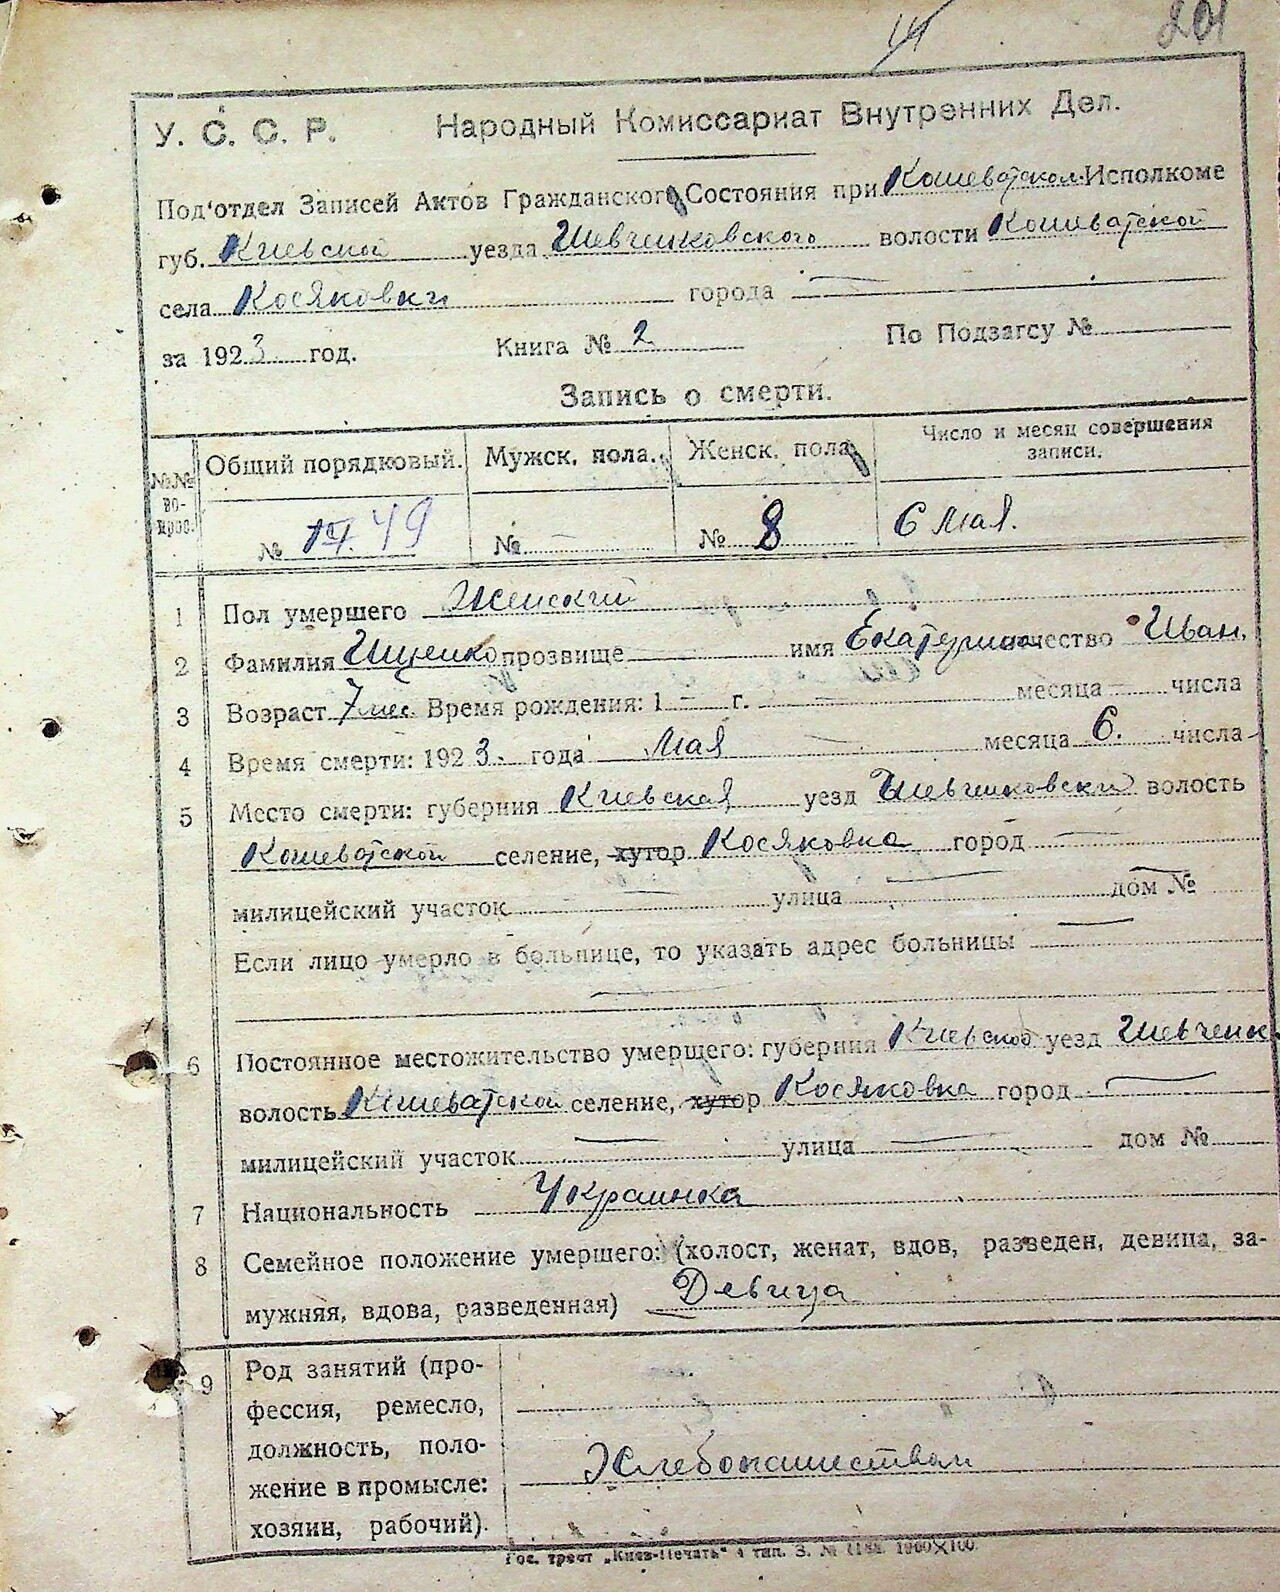 201
У. С. С. Р. Народный Комиссариат Внутренних Дел.
Под'отдел Записей Актов Гражданского Состояния при Кошеватском Исполкоме
губ. Киевской уезда Шевченковского волости Кошеватской
села Косяковки города —
за 1923 год. Книга № 2 По Подзагсу №
Запись о смерти.
№№ вопрос. Общий порядковый. Мужск. пола. Женск. пола Число и месяц совершения записи.
№ 49 № — № 8 6 Мая.
1 Пол умершего Женский
2 Фамилия Ищенко прозвище имя Екатерина отчество Иван.
3 Возраст 7 мес. Время рождения: 1 — г. — месяца — числа
4 Время смерти: 1923. года Мая месяца 6. числа
5 Место смерти: губерния Киевская уезд Шевченковский волость
Кошеватской селение, хутор Косяковка город —
милицейский участок — улица — дом № —
Если лицо умерло в больнице, то указать адрес больницы —
—
6 Постоянное местожительство умершего: губерния Киевской уезд Шевченк.
волость Кошеватской селение, хутор Косяковка город —
милицейский участок — улица — дом №
7 Национальность Украинка
8 Семейное положение умершего: (холост, женат, вдов, разведен, девица, за-
мужняя, вдова, разведенная) Девица
9 Род занятий (про-
фессия, ремесло,
должность, поло-
жение в промысле: Хлебопашеством
хозяин, рабочий).
Гос. трест „Киев-Печать" 4 тип. З. № 1900×100.